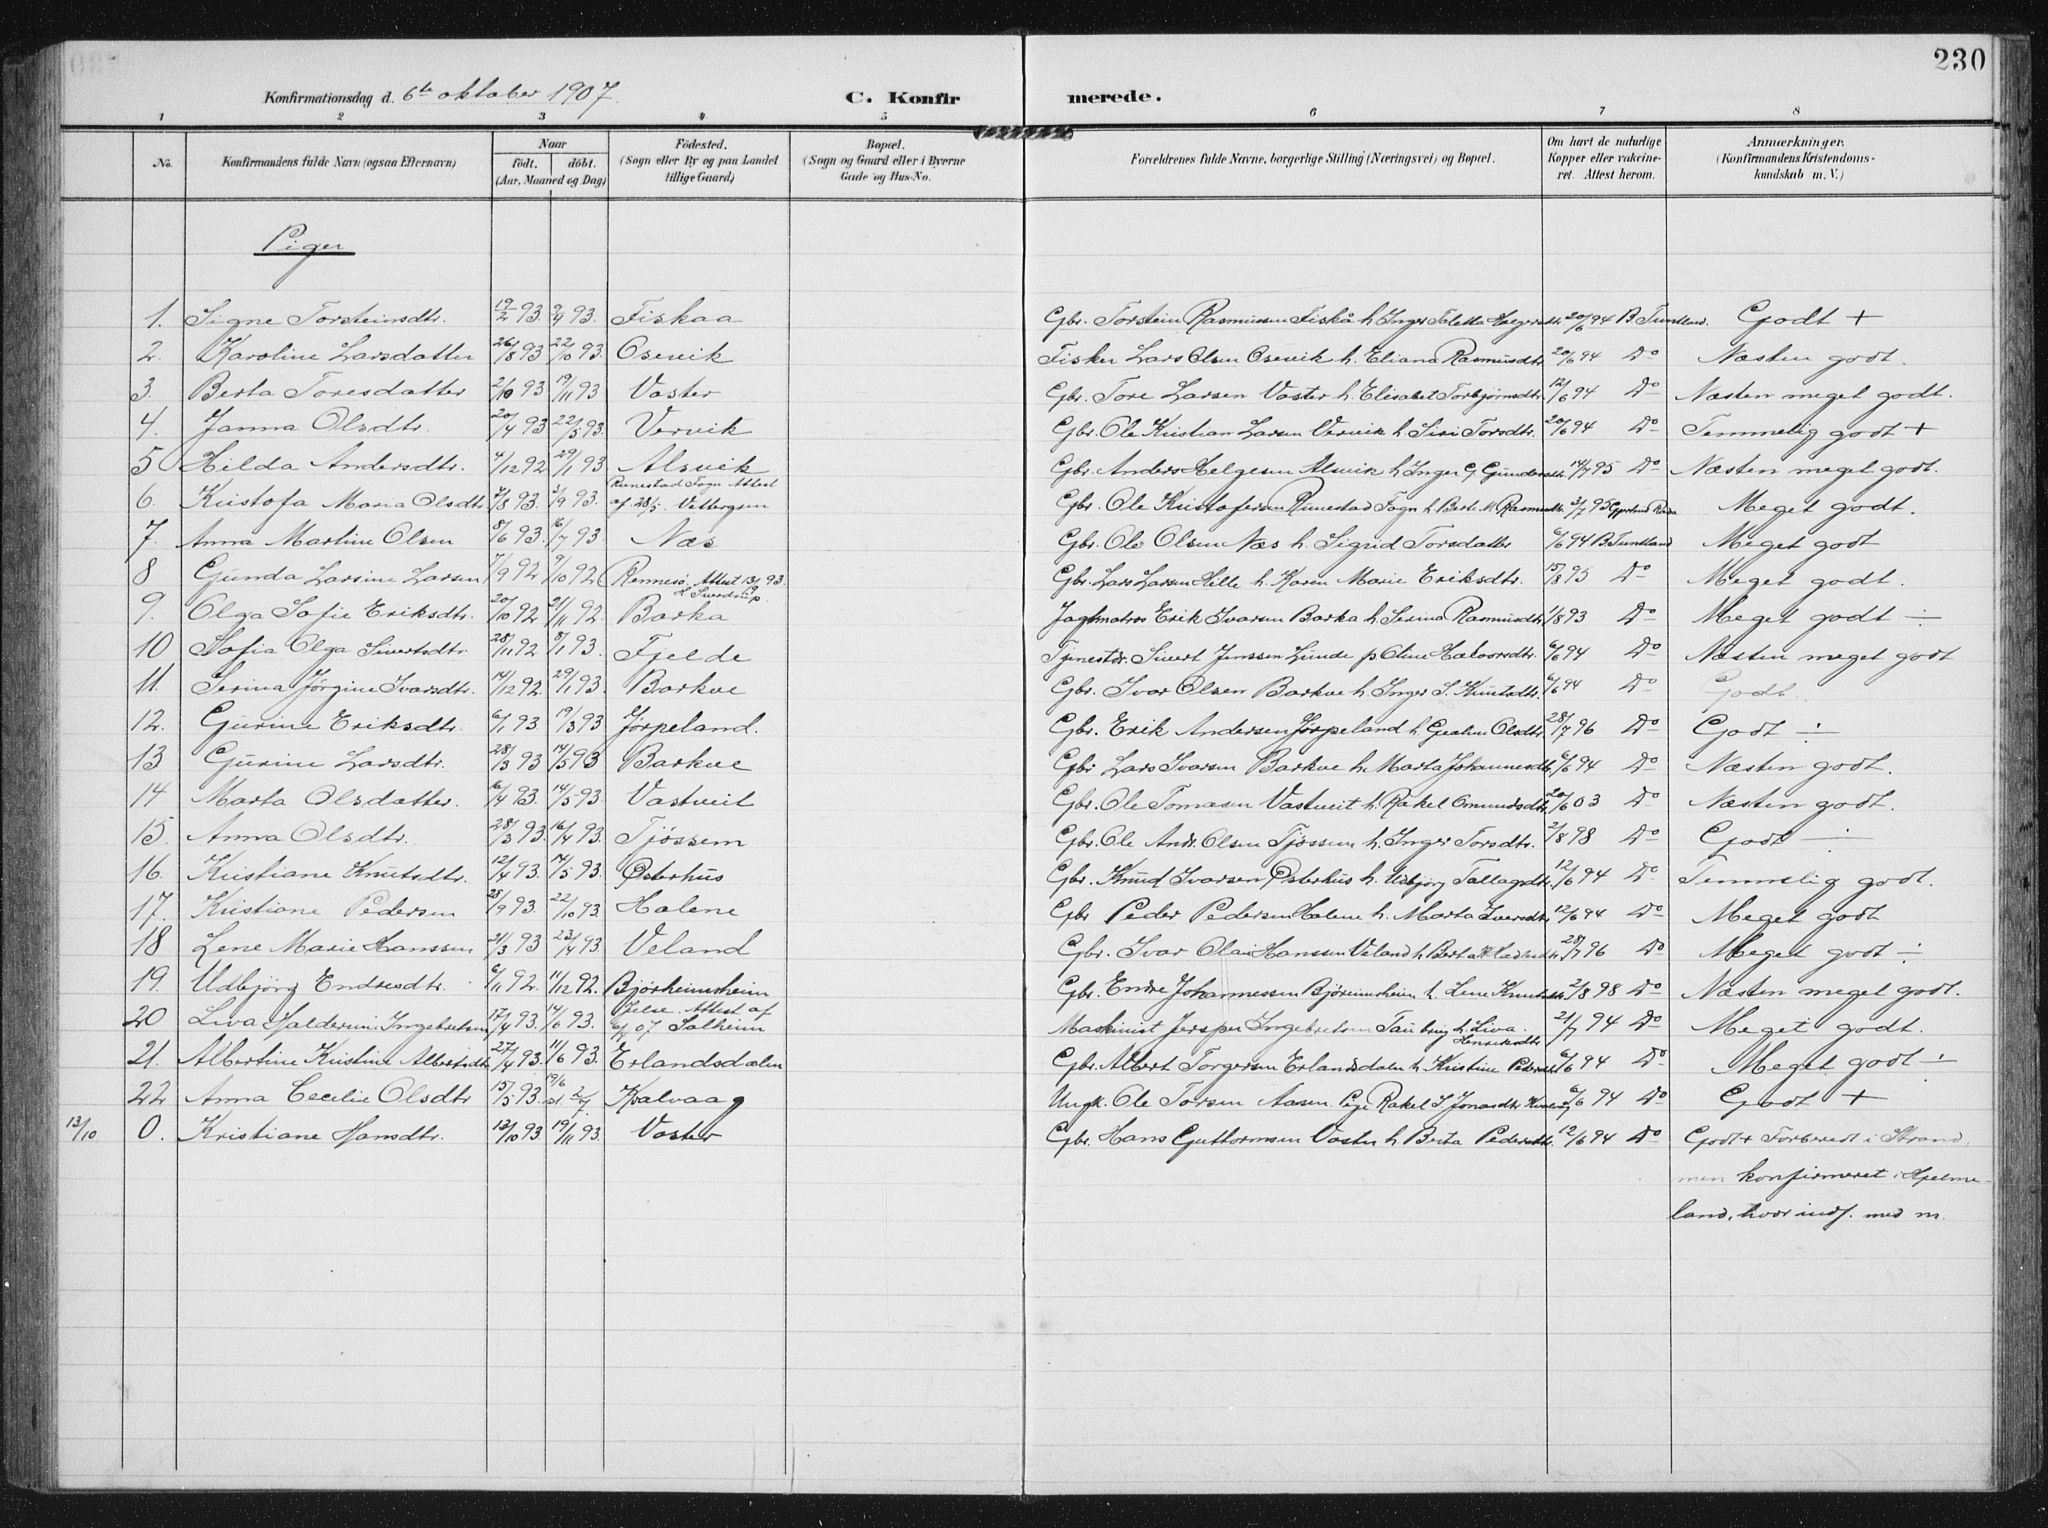 230
Konfirmationsdag d. 6te oktober 1907. C. Konfirmerede.
1 2 3 4 5 6 7 8
No. Konfirmandens fulde Navn (ogsaa Efternavn) Naar født. døbt. (Aar, Maaned og Dag) Fødested. (Sogn eller By og paa Landet tillige Gaard) Bopæl. (Sogn og Gaard eller i Byerne Gade og Hus-No. Forældrenes fulde Navne, borgerlige Stilling (Næringsvei) og Bopæl. Om havt de naturlige Kopper eller vaccineret. Attest herom. Anmærkninger. (Konfirmandens Kristendomskundskab m. V.)
Piger
1. Signe Torsteinsdtr. 19/2 93. 9/4 93. Fiskaa Gbr. Torstein Rasmussen Fiskå h. Inger Taletta 20/6 94 B Tuntland. Godt +
2. Karoline Larsdatter 26/8 93 22/10 93. Osevik Fisker Lars Olsen Osevik h. Eliana Rasmusdtr 20/6 94 Do Næsten godt.
3. Berta Toresdatter 2/10 93 19/11 93 Vaster Gbr. Tore Larsen Vaster h. Elisabet Torbjørnsdtr. 12/6 94 Do Næsten meget godt.
4. Janna Olsdtr. 20/4 93 22/5 93. Vervik Gbr. Ole Kristian Larsen Vervik h. Siri Torsdtr. 20/6 94 Do Temmelig godt +
5 Hilda Andersdtr. 4/12 92 29/1 93 Alsvik Gbr. Anders Helgesen Alsvik h. Inger G. Gundersdtr 14/7 95 Do Næsten meget godt.
6. Kristofa Maria Olsdtr 7/8 93. 3/9 93. Runestad Sogn Attest af 28/5. Gbr. Ole Kristofersen Runestad Sogn h. Berte M. Rasmusdtr 3/7 95 Meget godt.
7. Anna Martine Olsen 8/6 93. 16/7 93. Næs Gbr. Ole Olsen Næs h. Sigrid Torsdatter 6/6 94 B Tuntland Meget godt
8 Gunda Larsine Larsen 7/9 92 9/10 92 Rennesø. Attest 13/9 93. Sverdrup. Gbr. Lars Larsen Helle h. Karen Marie Eriksdtr. 15/8 95 Do Meget godt.
9. Olga Sofie Eriksdtr. 20/10 92 21/11 92. Barka Jagtmatros Erik Ivarsen Barka h. Serina Rasmusdtr 1/8 93 Do Meget godt ÷
10 Sofia Olga Sivertsdtr. 28/11 92 8/1 93. Fjelde Tjenestdr. Sivert Jenssen Lunde p. Oline Halvorsdtr. 6/6 94 Do Næsten meget godt
11. Serina Jørgine Ivarsdtr. 14/12 92. 29/1 93. Barkve Gbr. Ivar Olsen Barkve h. Inger S. Knutsdtr. 6/6 94 Do Godt.
12. Gurine Eriksdtr. 6/1 93 19/3 93 Jørpeland. Gbr. Erik Andersen Jørpeland h Olsdtr 28/7 96 Do Godt ÷
13 Gurine Larsdtr. 28/3 93 14/5 93 Barkve Gbr Lars Ivarsen Barkve h. Marta Johannesdtr. 6/6 94 Do Næsten godt.
14 Marta Olsdatter. 6/4 93. 14/5 93. Vastveit Gbr. Ole Tomasen Vastveit h. Rakel Omundsdtr 20/6 03 Do Næsten godt.
15. Anna Olsdtr. 28/3 93. 16/4 93. Tjøssem Gbr. Ole Andr. Olsen Tjøssem h. Inger Torsdtr. 2/8 98 Do Godt ÷
16. Kristiane Knutsdtr. 12/4 93. 14/5 93. Østerhus Gbr. Knud Ivarsen Østerhus h. Udbjørg Tallagsdtr. 12/6 94 Do Temmelig godt.
17. Kristiane Pedersen 28/9 93. 22/10 93. Halene Gbr Peder Pedersen Halene h. Marta Iversdtr 12/6 94 Do Meget godt
18 Lene Marie Hanssen 21/3 93 23/4 93. Veland Gbr. Ivar Olai Hanssen Veland h. Berta 28/7 96 Do Meget godt ÷
19. Udbjörg Endresdtr. 6/11 92. 11/12 92. Bjørheimsheim Gbr. Endre Johannessen Björeimsheim h. Lene Knutsdtr 2/8 98 Do Næsten meget godt.
20 Liva Halderine Ingebretsen 17/4 93. 14/6 93. Jelse. Attest af 6/9 07 Salheim Maskinist Jersper Ingebretsen Tau brug h. Liva Henriksdtr 21/7 94 Do Meget godt.
21. Albertine Kristine Albertsdtr 27/4 93. 11/6 93. Erlandsdalen Gbr. Albert Torgersen Erlandsdalen h. Kristine Pedersdtr 6/6 94 Do Meget godt ÷
22 Anna Cecilie Olsdtr 15/5 93. 19/6 st 2/7 Kvalvaag Ungk. Ole Torsen Aasen Pige Rakel S Jonasdtr Kvalvåg 6/6 94 Do Godt +
13/10 0. Kristiane Hansdtr. 13/10 93. 19/11 93. Vaster Gbr. Hans Guttormsen Vaster h. Berta Pedersdtr. 12/6 94 Do Godt + Forberedt i Strand,
men konfirmeret i Hjelme-
land, hvor indf. med n.